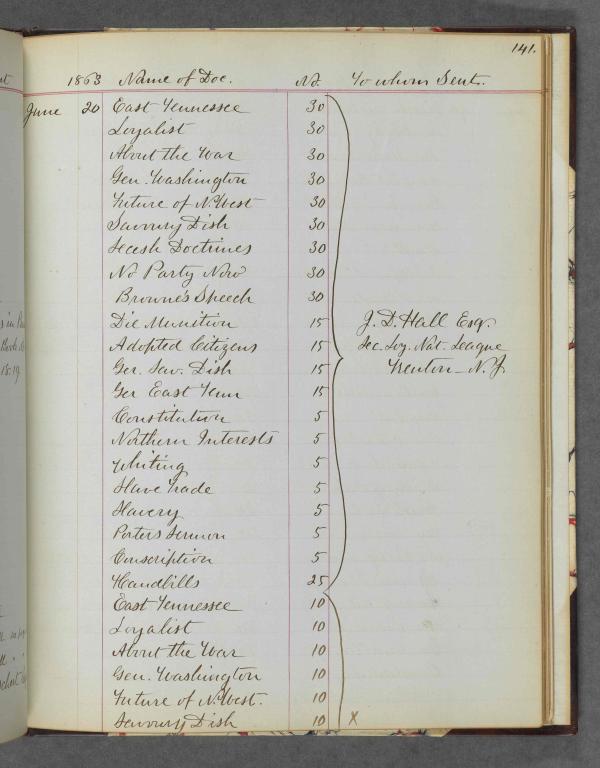 141.
1863 Name of Doc. No. To whom Sent.
June 20 East Tennessee 30
Loyalist 30
About the War 30
Gen. Washington 30
Future of N. West 30
Savoury Dish 30
Secesh Doctrines 30
No Party Now 30
Browne's Speech 30
Die Munition 15 J. D. Hall Esq.
Adopted Citizens 15 Sec. Loy. Nat. League
Ger. Sav. Dish 15 Trenton - N. J.
Ger East Tenn 15
Constitution 5
Northern Interests 5
Whiting 5
Slave Trade 5
Slavery 5
Porters Sermon 5
Conscription 5
Handbills 25
East Tennessee 10
Loyalist 10
About the War 10
Gen. Washington 10
Future of N. West. 10
Savoury Dish 10 X